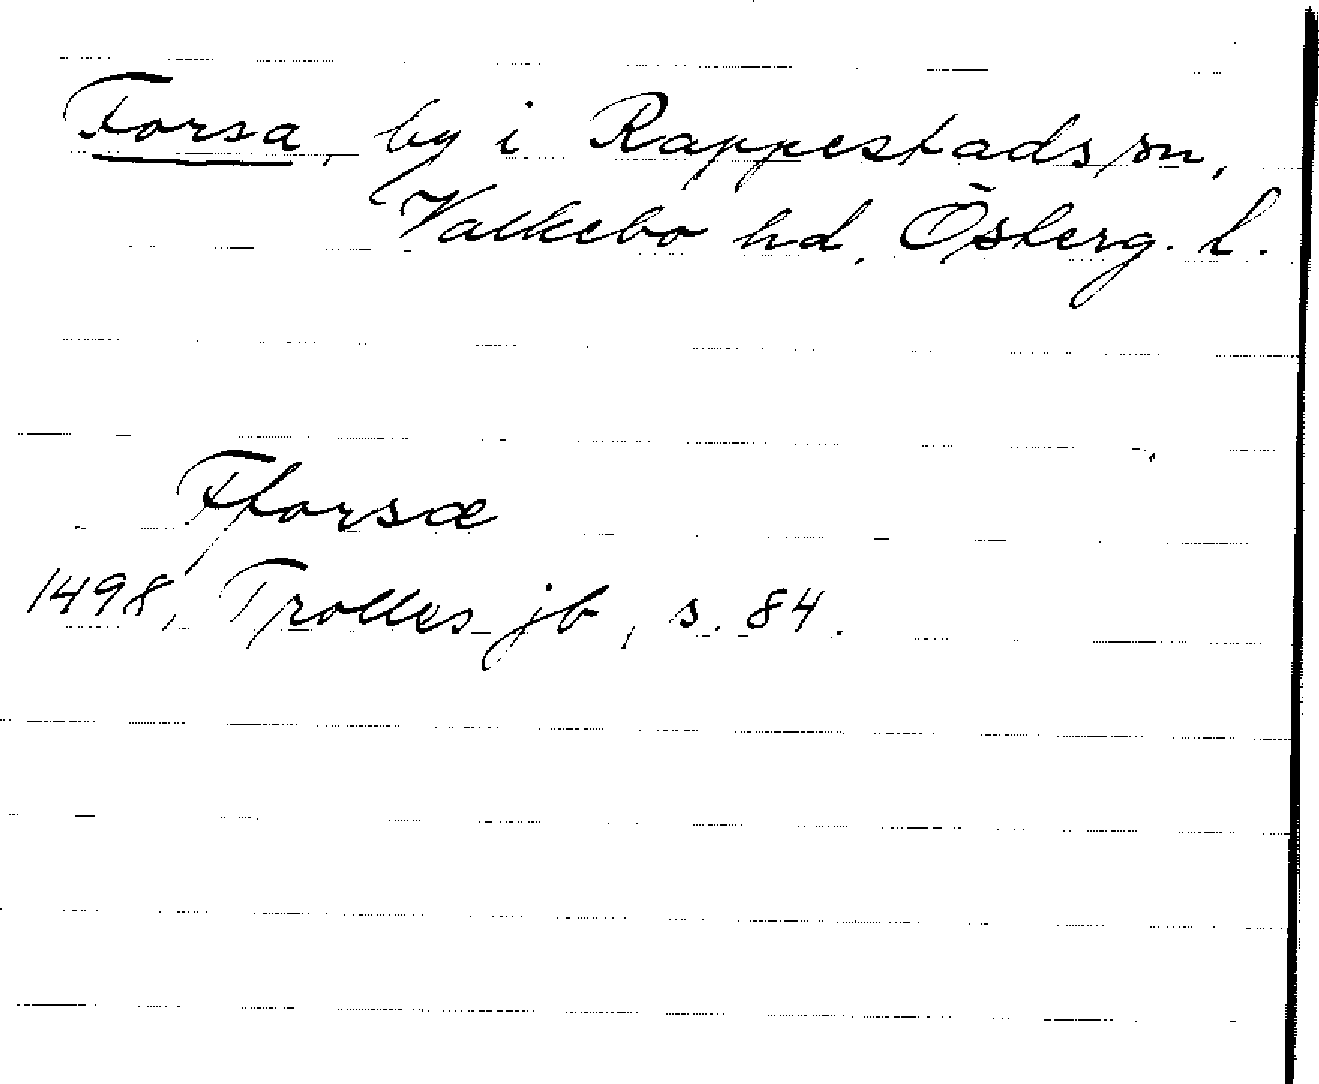 Forsa, by i Rappestads sn,
Valkebo hd, Österg. l.
Fforsæ
1498, Trolles jb, s. 84.